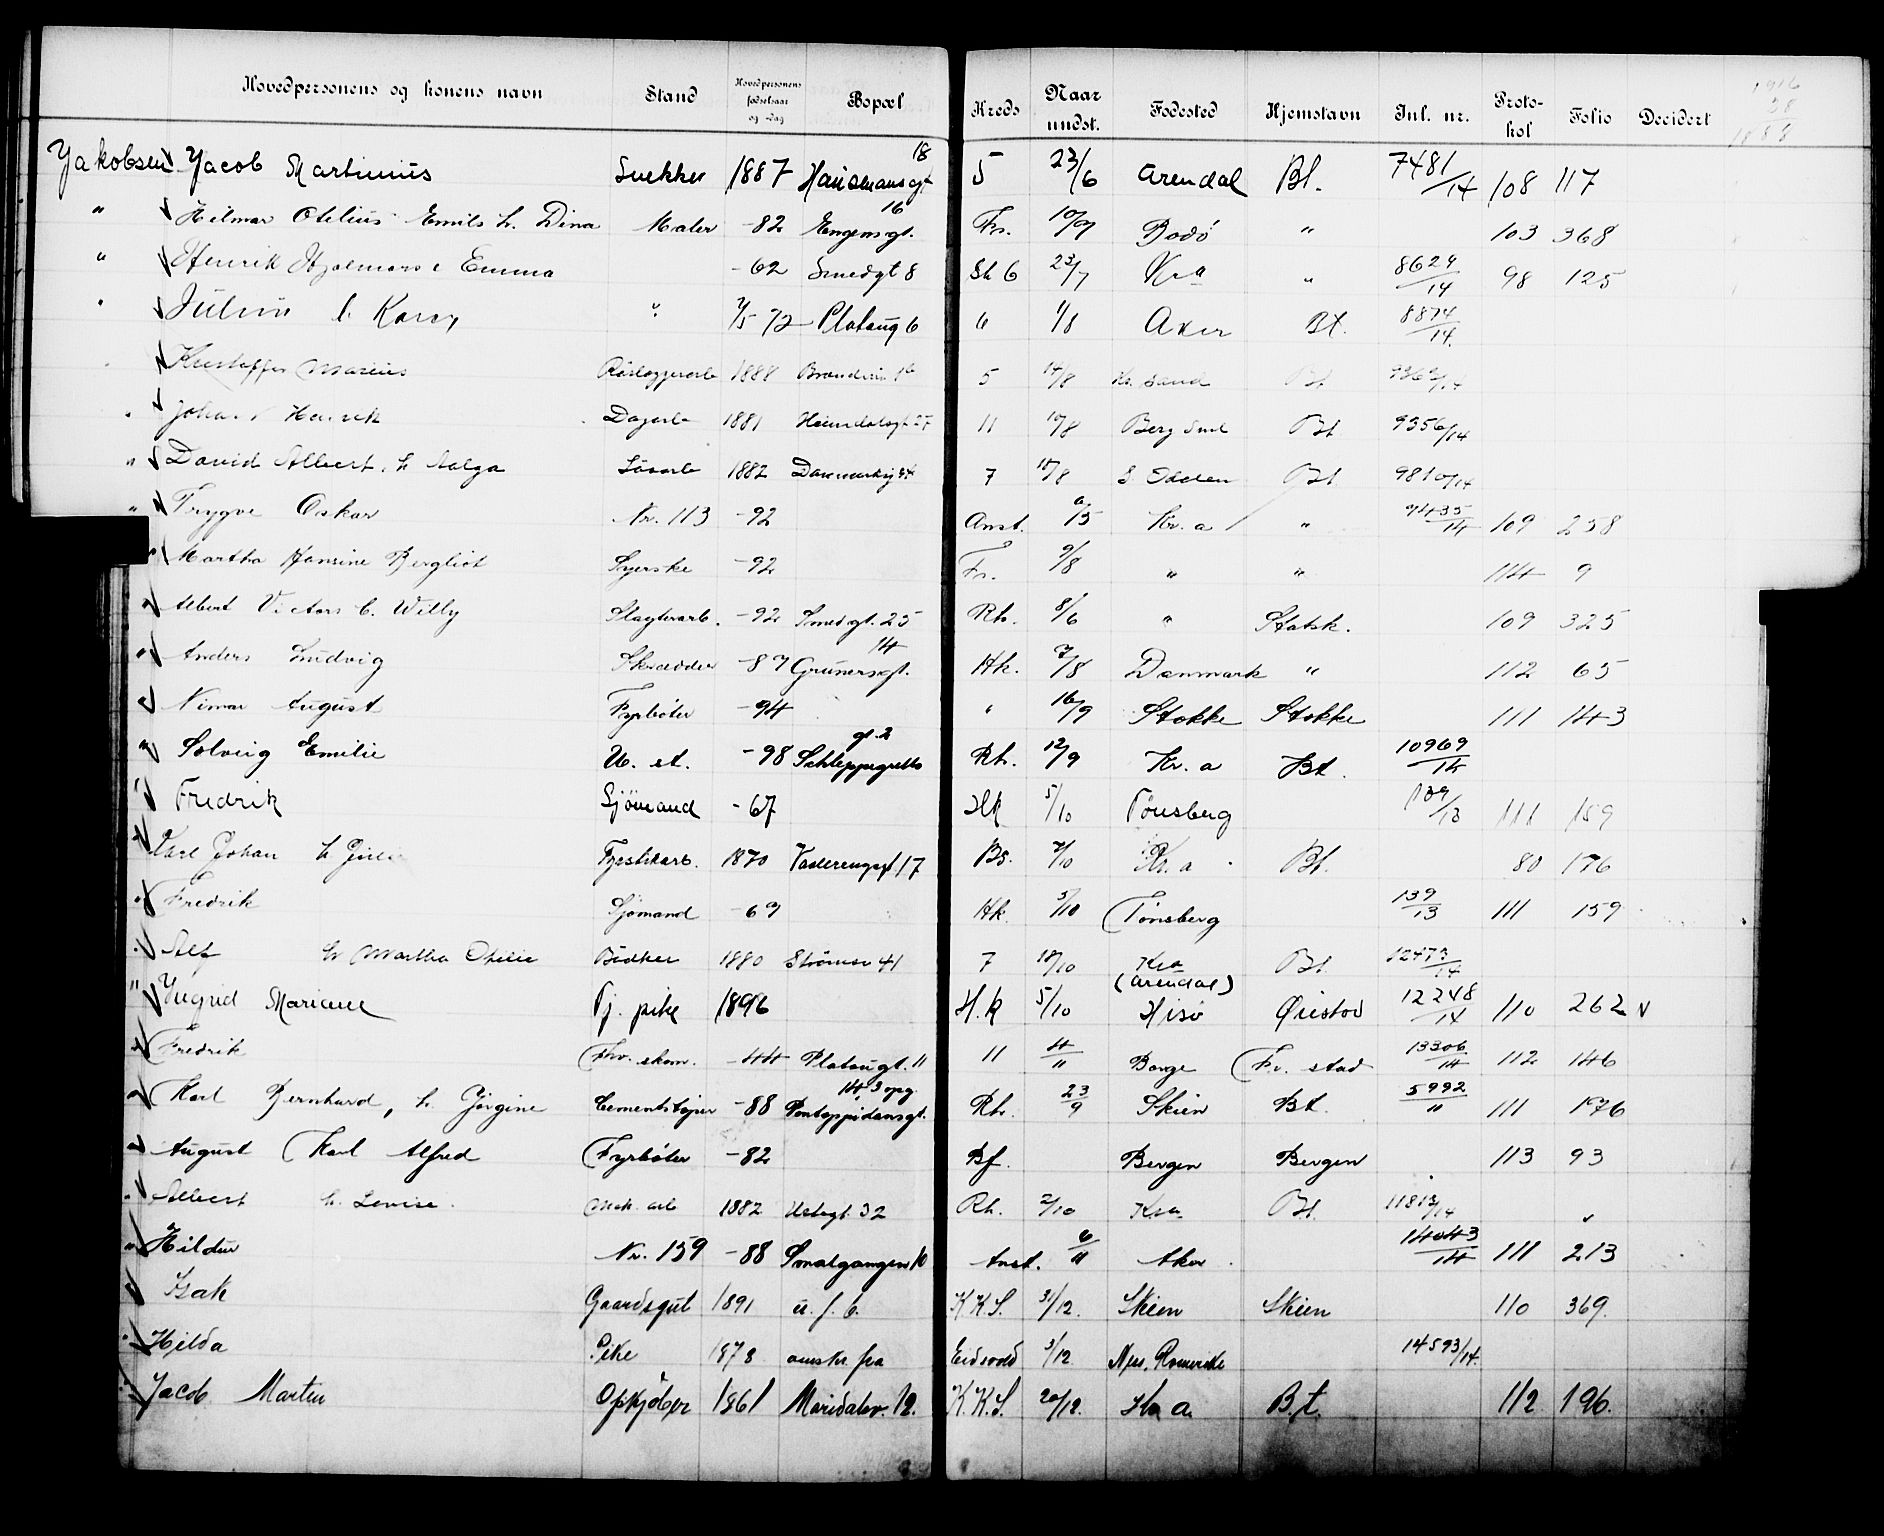 Hovedpersonens og konens navn Stand Hovedpersonens fødselsaar og -dag Bopæl Kreds Naar undst. Fødested Hjemstavn Inl. nr. Protokol Folio Decidert
1916
28
1888
Yakobsen Jacob Martinius Snekker 1887 Hausmansgt 18 5 23/6 Arendal Bt. 7481/14 108 117
" Hilmar Otelius Emils h. Dina Maler -82 Engensgt. 16 Fr. 10/7 Bodø " 103 368
" Henrik Hjalmars Emma -62 Smedgt 8 Sk 6 23/7 Kra " 8629/14 98 125
" Julius h. Karen " 7/5 72 Plataug 6 6 1/8 Aker Bt. 8874/14
Kristoffer Marius Rørlæggerarb 1888 5 14/8 Kr. sand Bt
" Johan Henrik Dagarb 1881 Heimdalsgt 27 11 10/8 Berg Sml Bt 9356/14
" David Albert. h Aslga Løsarb 1882 Danmarksg 34 7 18/8 S Odalen Bt 9810/14
" Trygve Oskar Nr. 113 -92 Anst. 6/5 Kr. a " 9435/14 109 258
" Martha Hansine Bergliot Syerske -92 Fr. 9/8 " " 114 9
" Albert Victors C. Willy Slagterarb. -92 Smedgt. 25 Rh. 8/6 " Statsk. 109 325
" Anders Ludvig Skrædder -87 Grünersgt. 14 Hk. 7/8 Danmark " 112 65
" Nimar August Fyrbøter -94 " 16/9 Stokke Stokke 111 143
" Solveig Emilie U. st. -98 Schleppegrells gt. 2 Rh. 12/9 Kr. a Bt. 10969/14
" Fredrik Sjömand -67 Hk 5/10 Tønsberg 139/13 111 159
" Karl Johan h Fyrstikarb. 1870 Vaalerenggt 17 Bs. 7/10 Kr. a Bt. 80 176
" Fredrik Sjømand -67 Hk. 5/10 Tønsberg 139/13 111 159
" Alf h Martha Otelie Bødker 1880 Strømsv 41 7 18/10 Kra Bt 12473/14
" Yngrid Mariane Tj. pike 1896 H.k 5/10 (Arendal) Hisø Øiestad 12248/14 110 262 v
" Fredrik Fhv. skom. -44 Plataugt. 11 11 4/11 Borge Fr. stad 13306/14 112 146
" Karl Bernhard, h. Jørgine Cementstøper -88 Pontoppidansgt. 14, 3 opg Rh. 23/9 Skien Bt. 5992/11 111 176
" August Karl Alfred Fyrbøter -82 Bf. Bergen Bergen 113 93
" Albert h. Lovise. Mek. arb 1882 Ustegt. 32 Rh. 2/10 Kra Bt. 11813/14
" Hildur Nr. 159 -88 Smalgangen 10 Anst. 6/11 Aker 14043/14 111 213
" Isak Gaardsgut 1891 u. f. b. K.K.S. 31/12. Skien Skien 110 369.
" Hilda Pike 1878 ønsker fra Eidsvold 3/12. Nes, Romerike 14593/14.
" Jacob Martin Opkjøber 1861 Maridalsv. 12. K.K.S. 20/12. Kr a. B.t. 112. 196.